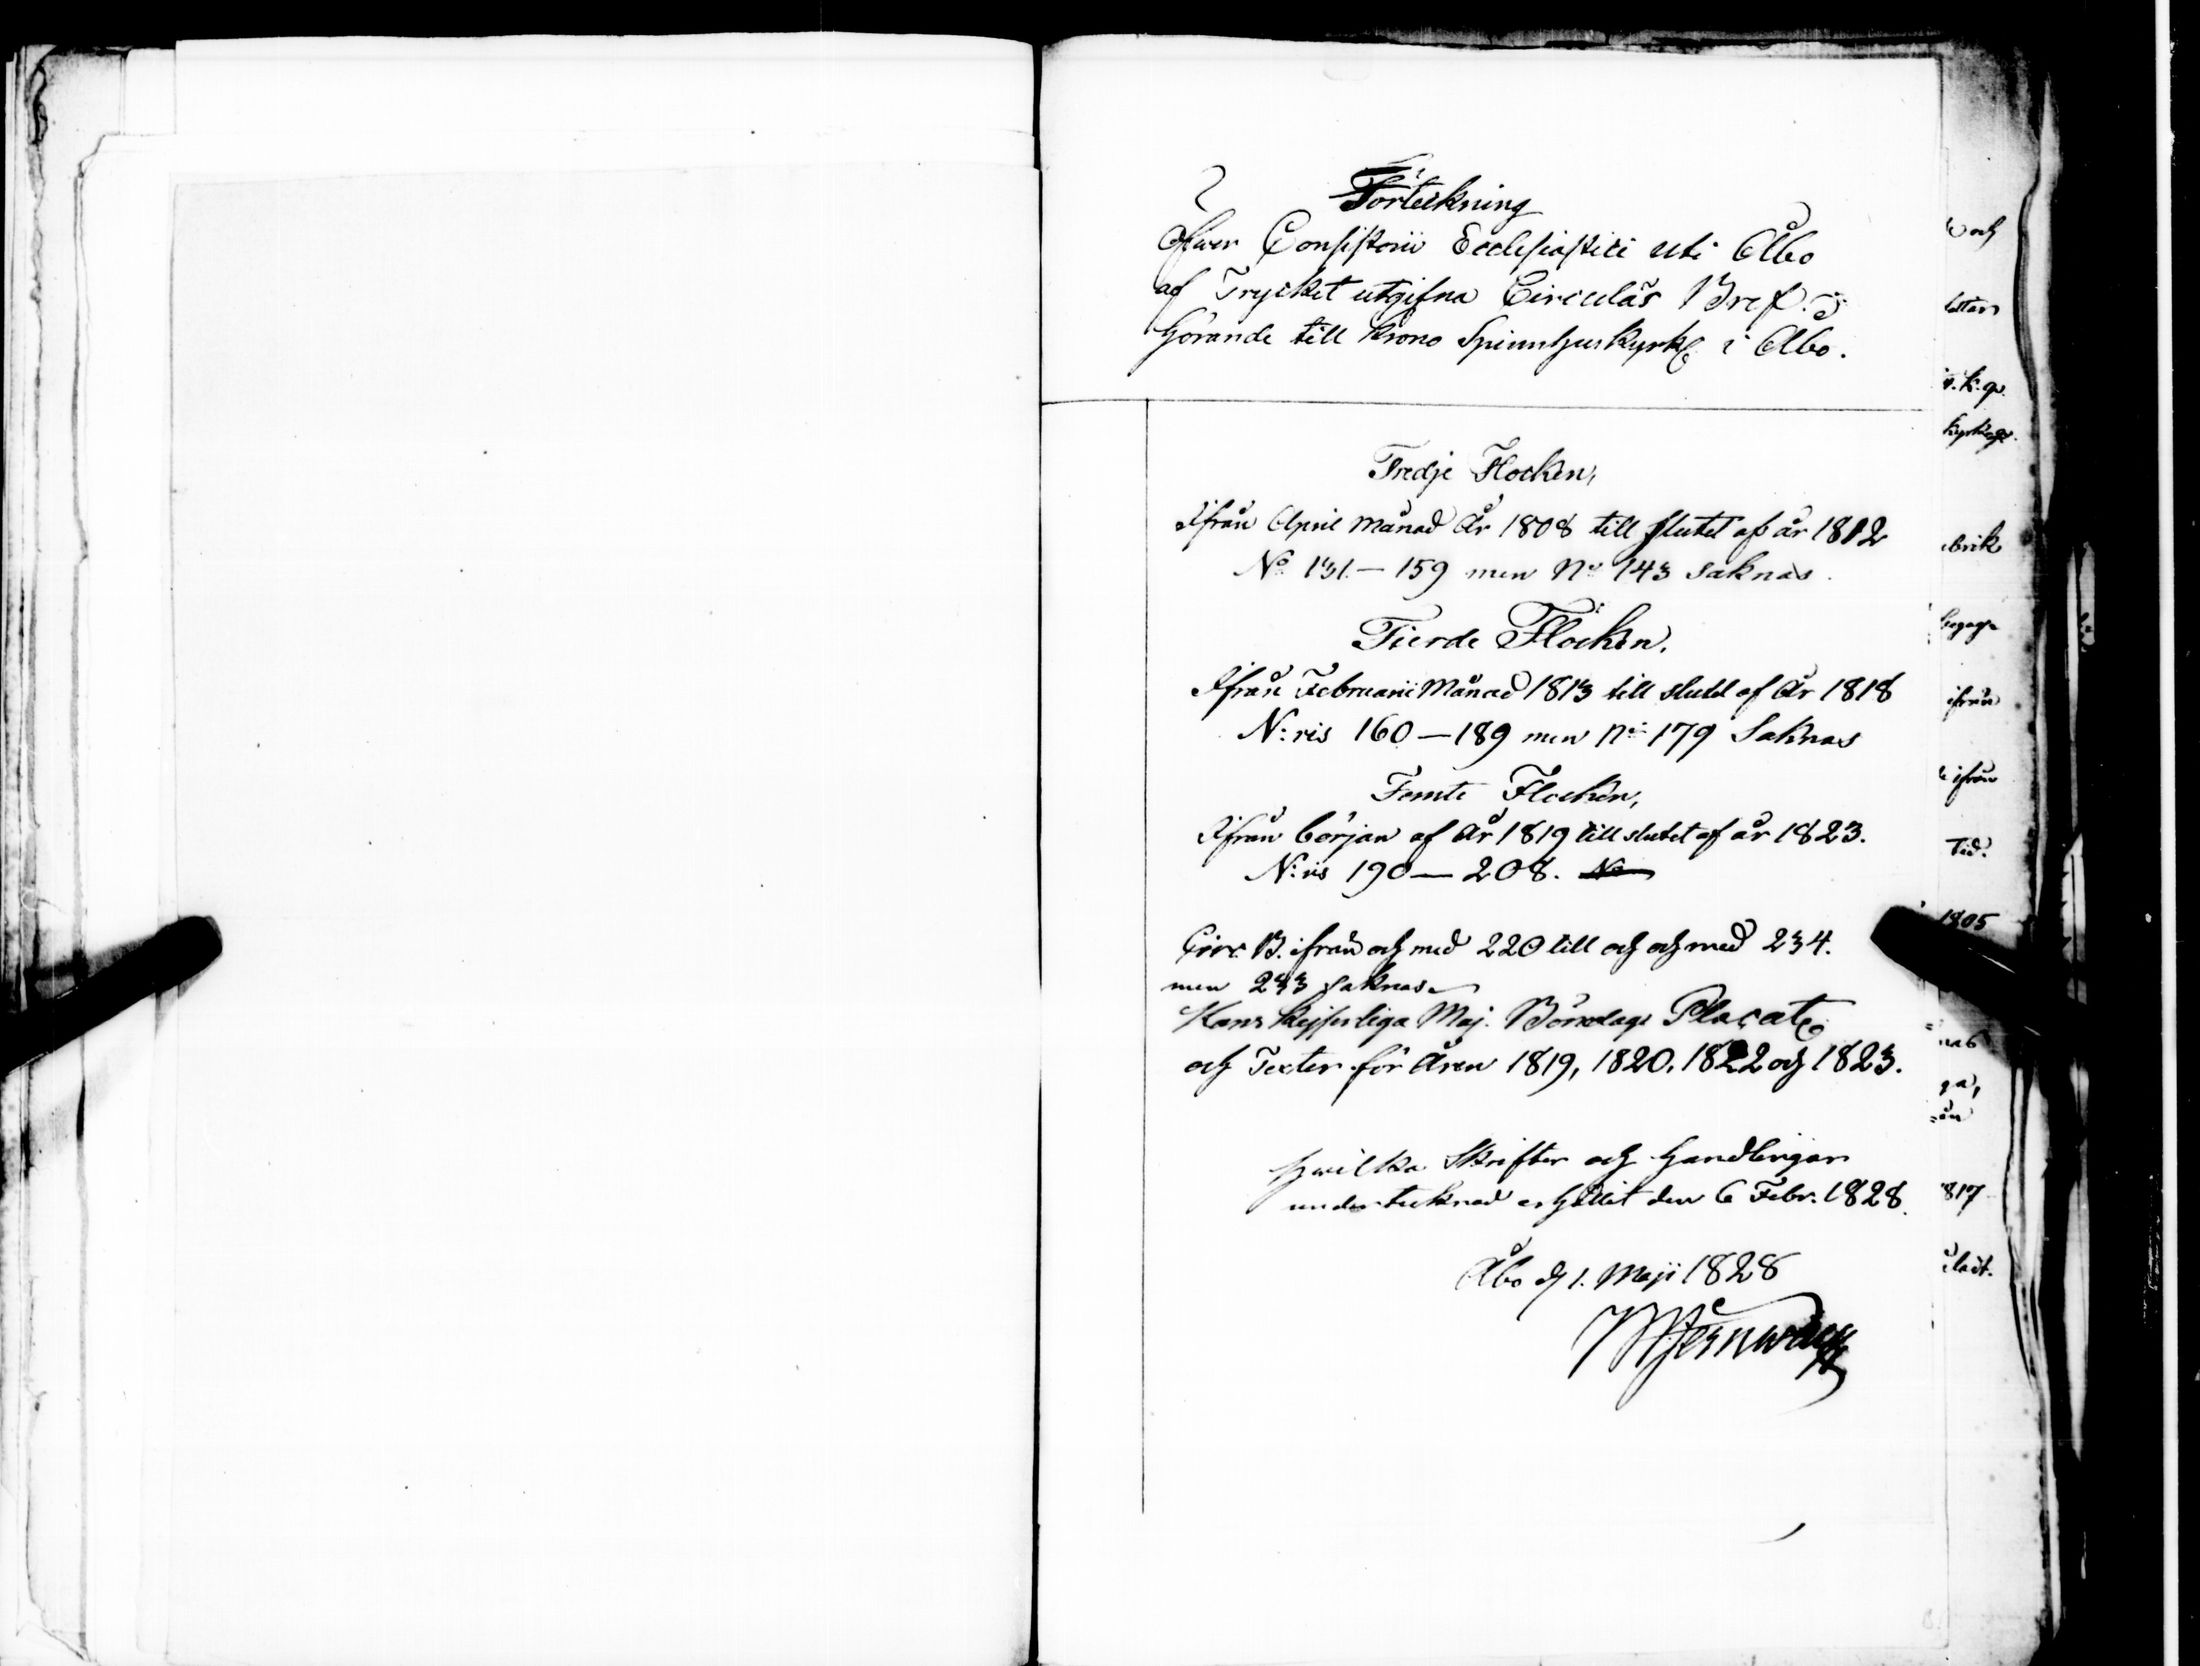 Förteckning
öfwer Consistorii Ecclesiastici uti Åbo
af Trycket utgifna Circulär Bref.
hörande till Krono Spinnhus kyrk i Åbo.
Tredje Flocken,
Ifrån April månad År 1808 till slutet af år 1812
No 131.— 159 men No 143 saknas.
Fierde Flocken.
Ifrån Februarii Månad 1813 till slutet af År 1818
N:ris 160 — 189 men No 179 Saknas
Femte Flocken,
Ifrån början af År 1819 till slutet af år 1823.
N:ris 190 — 208. No
Circ. B. ifrån och med 220 till och och med 234.
men 233 saknas.
Hans Kejserliga Maj. Bönedags Placat
och Texter för Åren 1819, 1820, 1822 och 1823.
Hwilka Skrifter och Handlingar
undertecknad erhållit den 6 Febr. 1828.
Åbo d 1. Maji 1828
och
k. gr.
ifrån
ifrån
Tid.
1805
ga,
1817